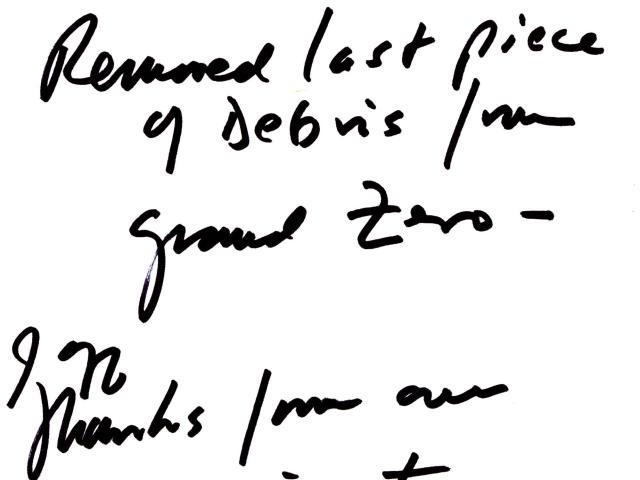 Removed last piece
of Debris from
ground Zero -
Thanks from our